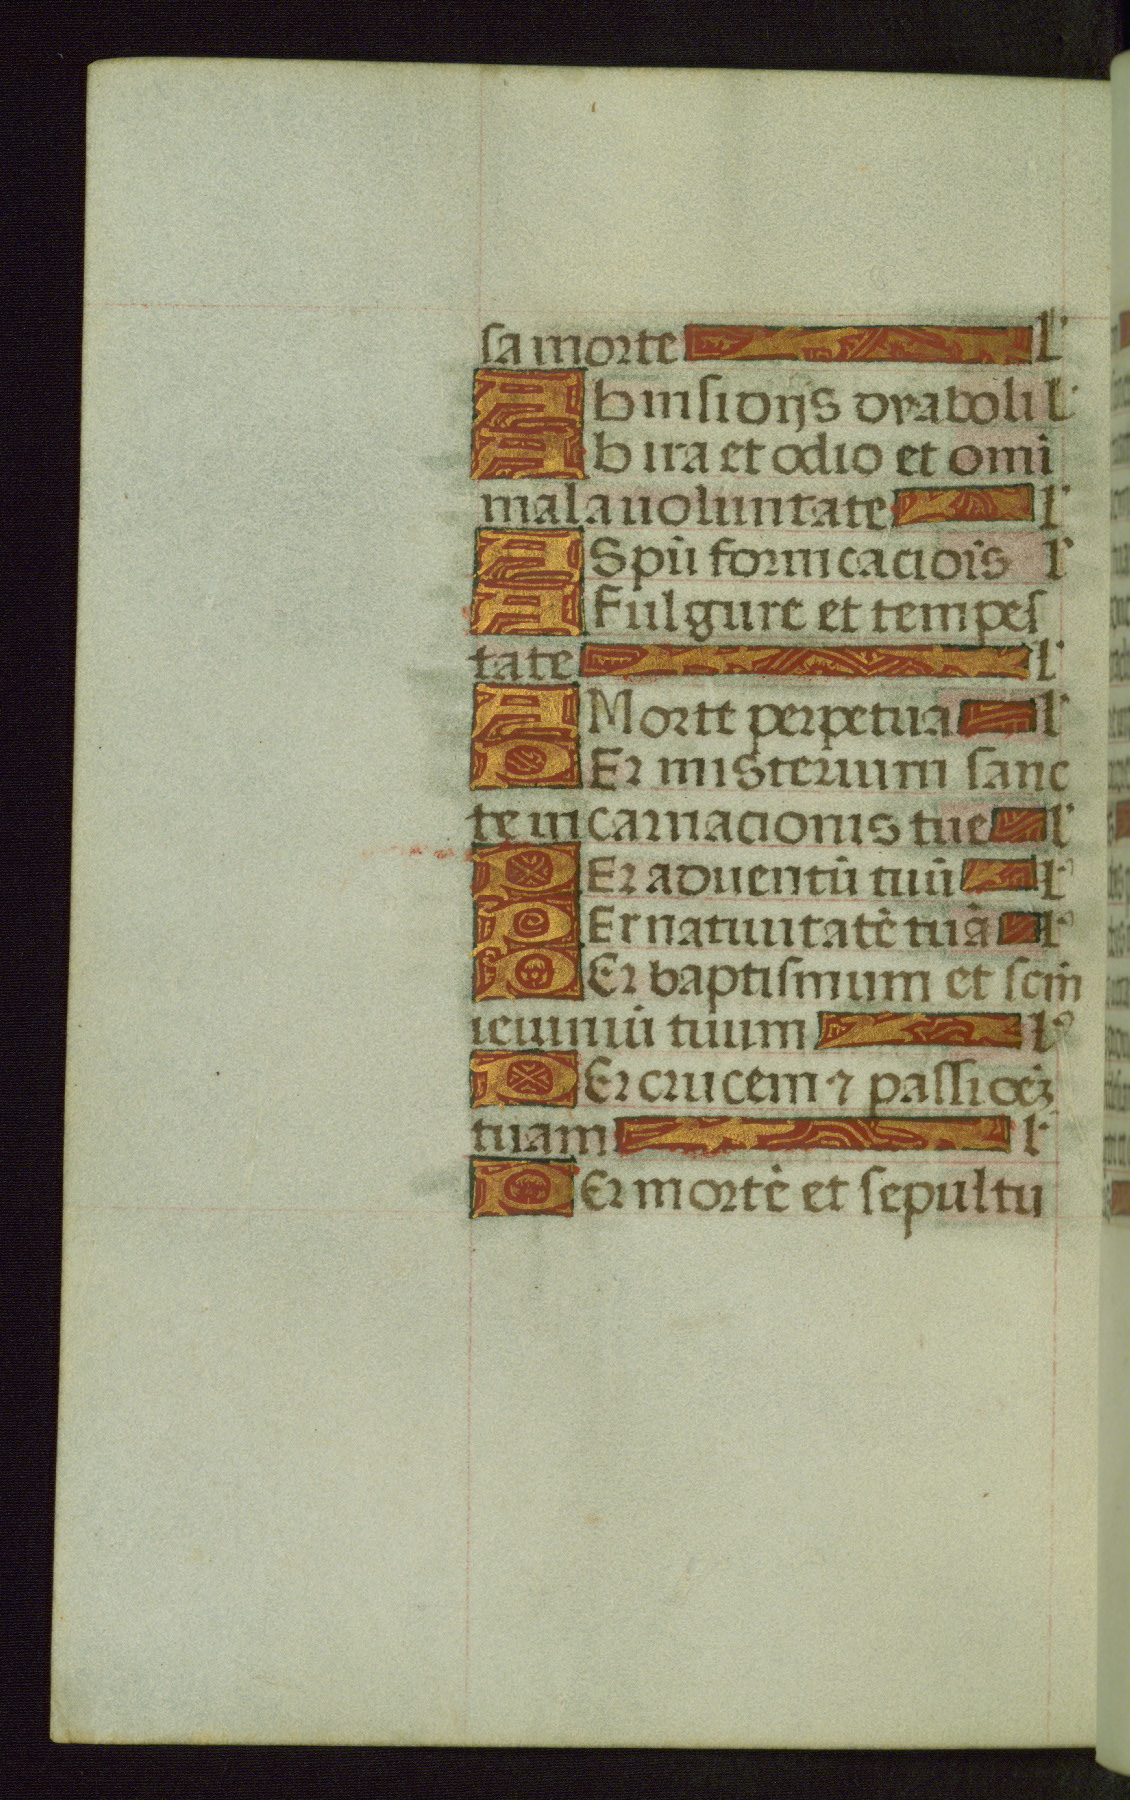 sa morte l'
Ab insidijs dyaboli l'
Ab ira et odio et omī
mala uoluntate l'
A Spū fornicaciois̄ l'
A Fulgure et tempes
tate l'
A Morte perpetua l'
PEr misterium sanc
te incarnacionis tue l'
PEr aduentū tuū l'
PEr natiuitatē tuā l'
PEr baptismum et scm̄
ieiuniū tuum l'
PEr crucem ⁊ passioēꝫ
tuam l'
PEr mortē et sepultu